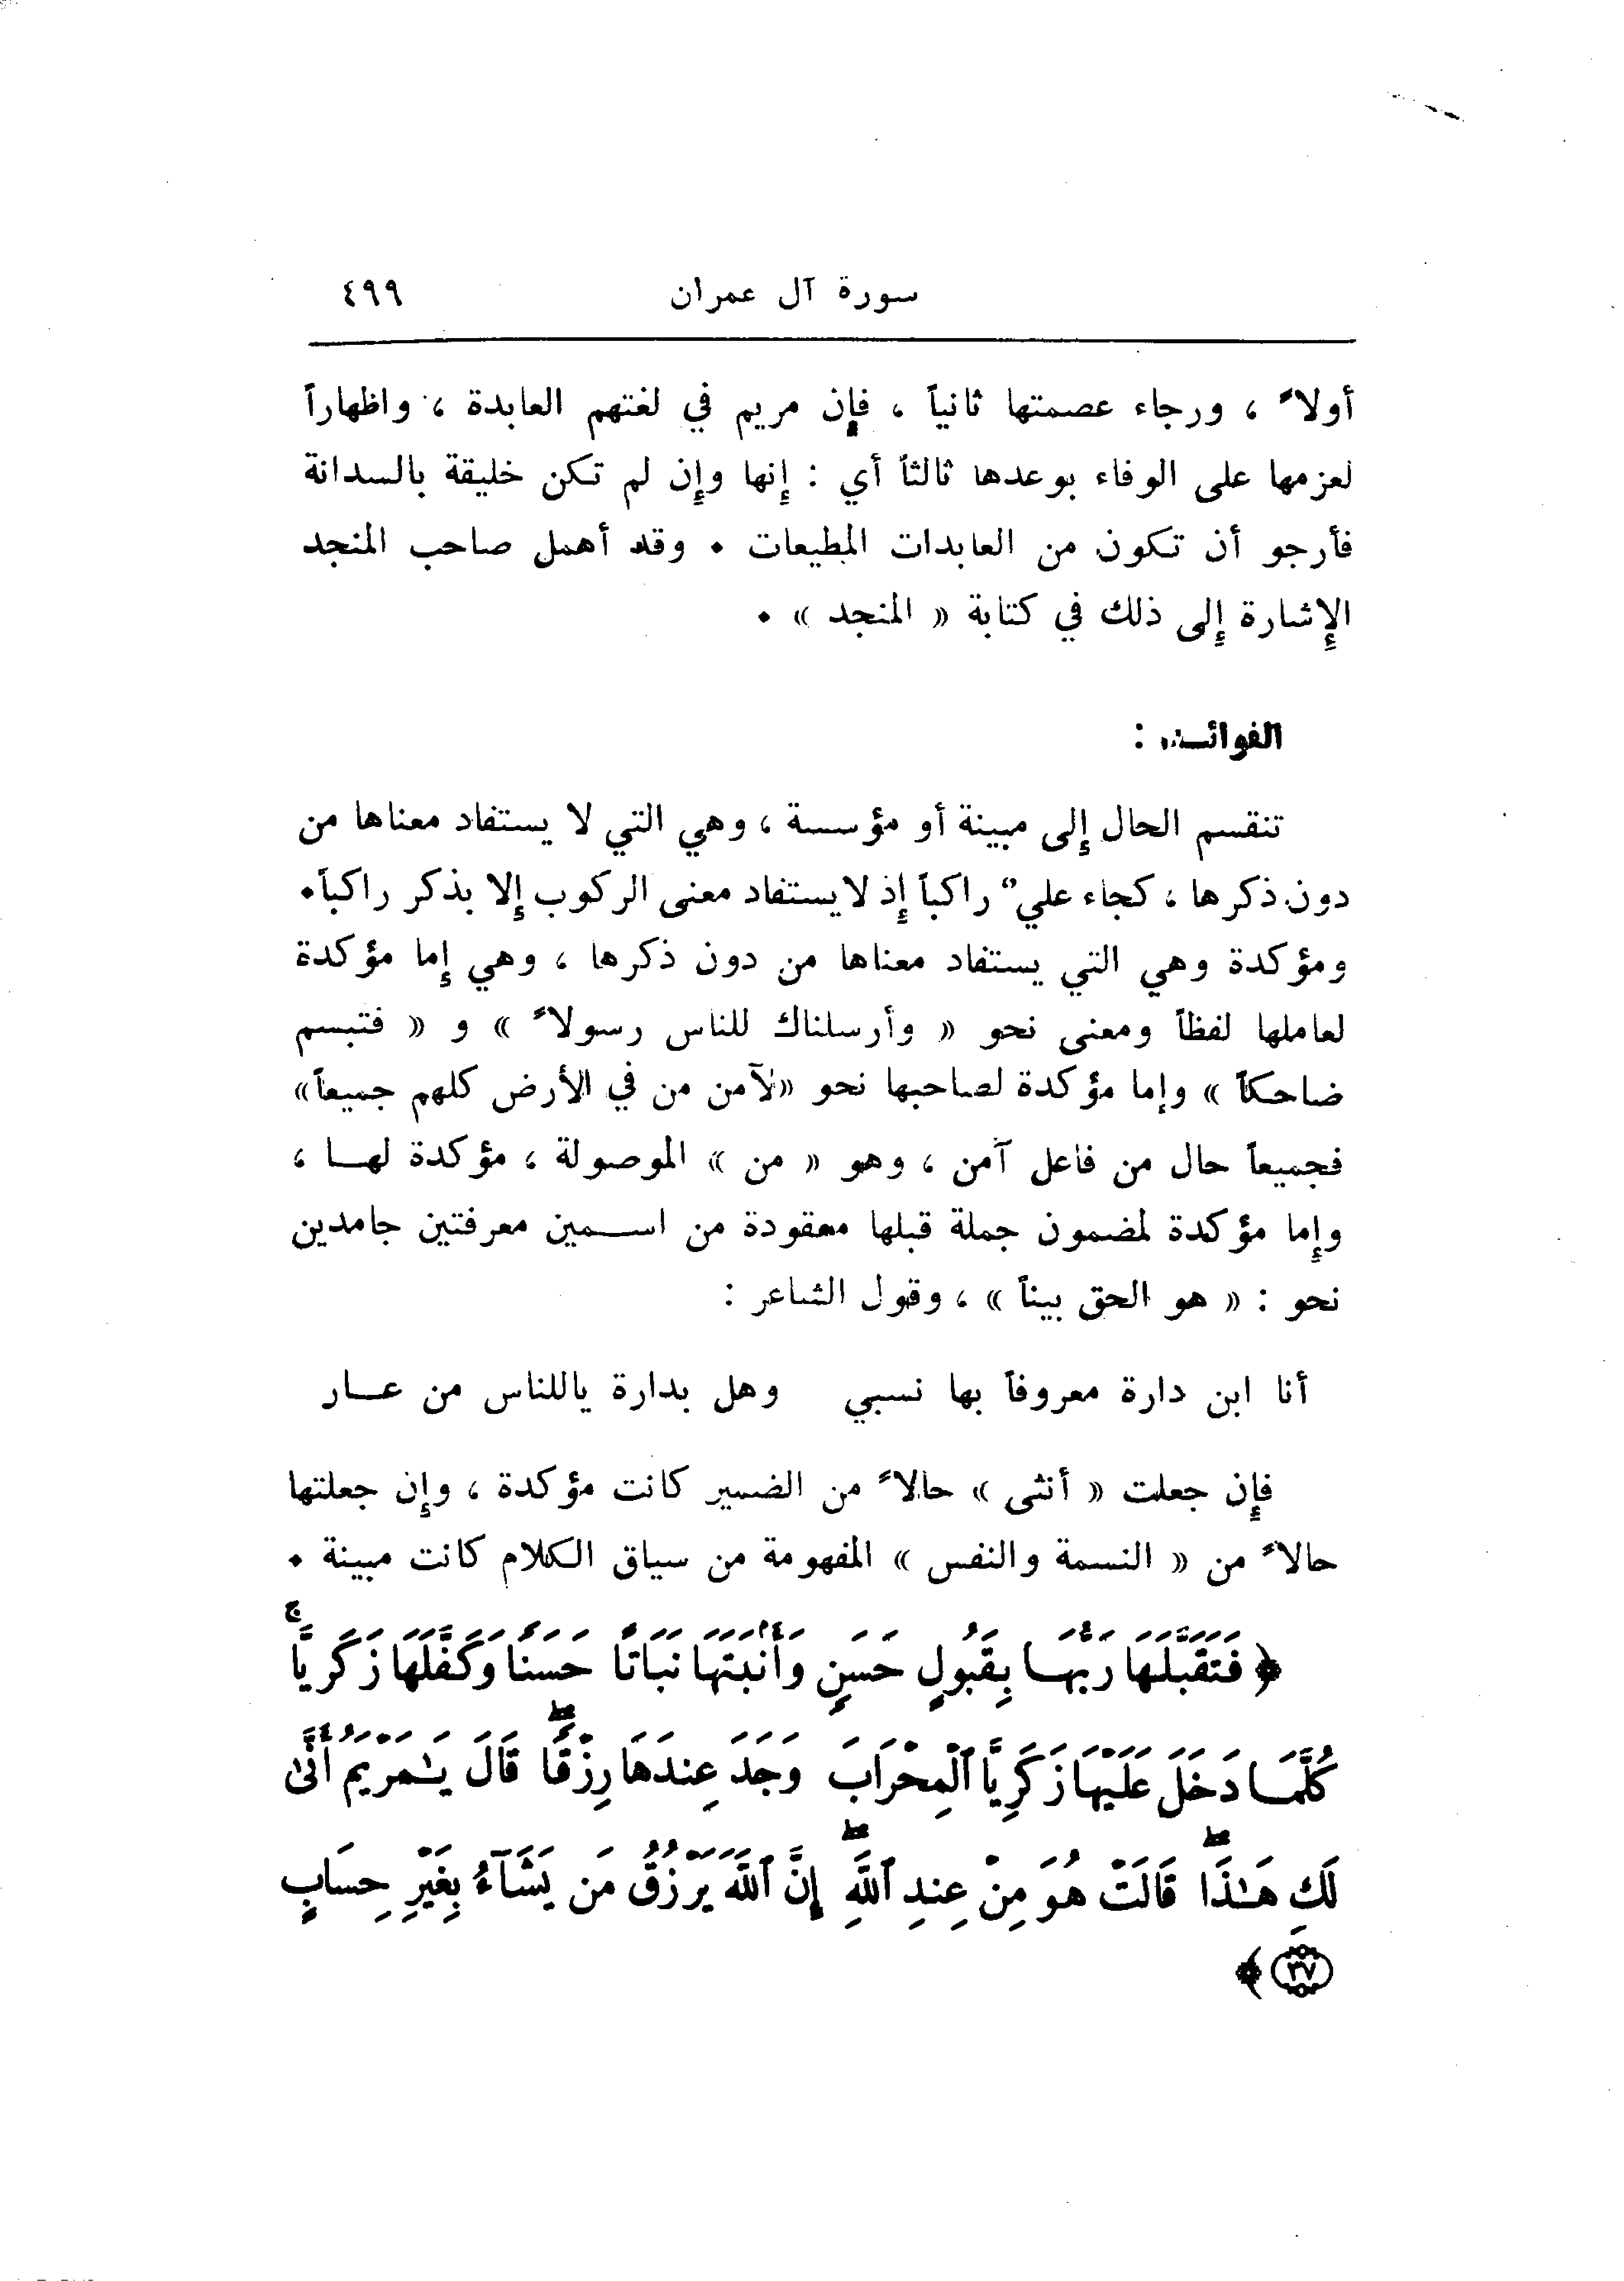 سورة آل عمران ٤٩٩
أولاً ، ورجاء عصمتها ثانياً ، فإن مريم في لغتهم العابدة ، واظهاراً
لعزمها على الوفاء بوعدها ثالثاً أي : إنها وإن لم تكن خليقة بالسدانة
فأرجو أن تكون من العابدات المطيعات . وقد أهمل صاحب المنجد
الإشارة إلى ذلك في كتابة « المنجد » .
الفوائد :
تنقسم الحال إلى مبينة أو مؤسسة ، وهي التي لا يستفاد معناها من
دون ذكرها ، كجاء عليٌ راكباً إذ لايستفاد معنى الركوب إلا بذكر راكباً.
ومؤكدة وهي التي يستفاد معناها من دون ذكرها ، وهي إما مؤكدة
لعاملها لفظاً ومعنى نحو « وأرسلناك للناس رسولاً » و « فتبسم
ضاحكاً » وإما مؤكدة لصاحبها نحو «لآمن من في الأرض كلهم جميعاً»
فجميعاً حال من فاعل آمن ، وهو « من » الموصولة ، مؤكدة لهـا ،
وإما مؤكدة لمضمون جملة قبلها معقودة من اسـمين معرفتين جامدين
نحو : « هو الحق بيناً » ، وقول الشاعر :
أنا ابن دارة معروفاً بها نسبي وهل بدارة ياللناس من عـار
فإن جعلت « أنثى » حالاً من الضمير كانت مؤكدة ، وإن جعلتها
حالاً من « النسمة والنفس » المفهومة من سياق الكلام كانت مبينة .
﴿ فَتَقَبَّلَهَا رَبُّهَا بِقَبُولٍ حَسَنٍ وَأَنۢبَتَهَا نَبَاتًا حَسَنًا وَكَفَّلَهَا زَكَرِيَّاۚ
كُلَّمَا دَخَلَ عَلَيْهَا زَكَرِيَّا ٱلْمِحْرَابَ وَجَدَ عِندَهَا رِزْقًاۖ قَالَ يَـٰمَرْيَمُ أَنَّىٰ
لَكِ هَـٰذَاۖ قَالَتْ هُوَ مِنْ عِندِ ٱللَّهِۖ إِنَّ ٱللَّهَ يَرْزُقُ مَن يَشَآءُ بِغَيْرِ حِسَابٍ
٣٧ ﴾